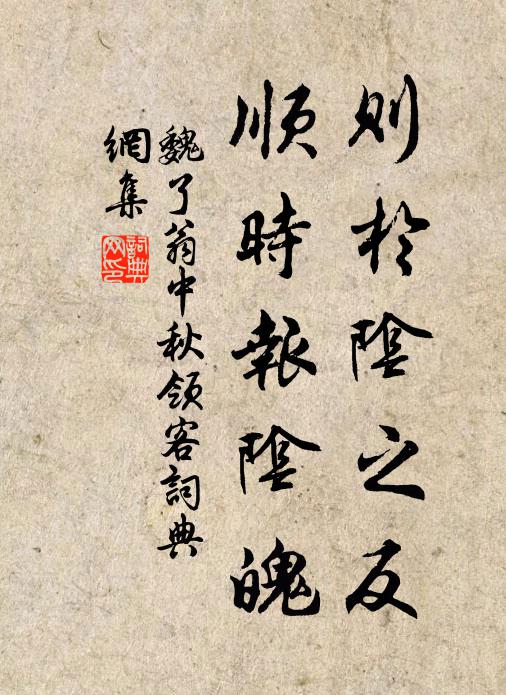 則於陰之反
順時報陰魄
魏了翁中秋領客詞典
網集
詞典
网印